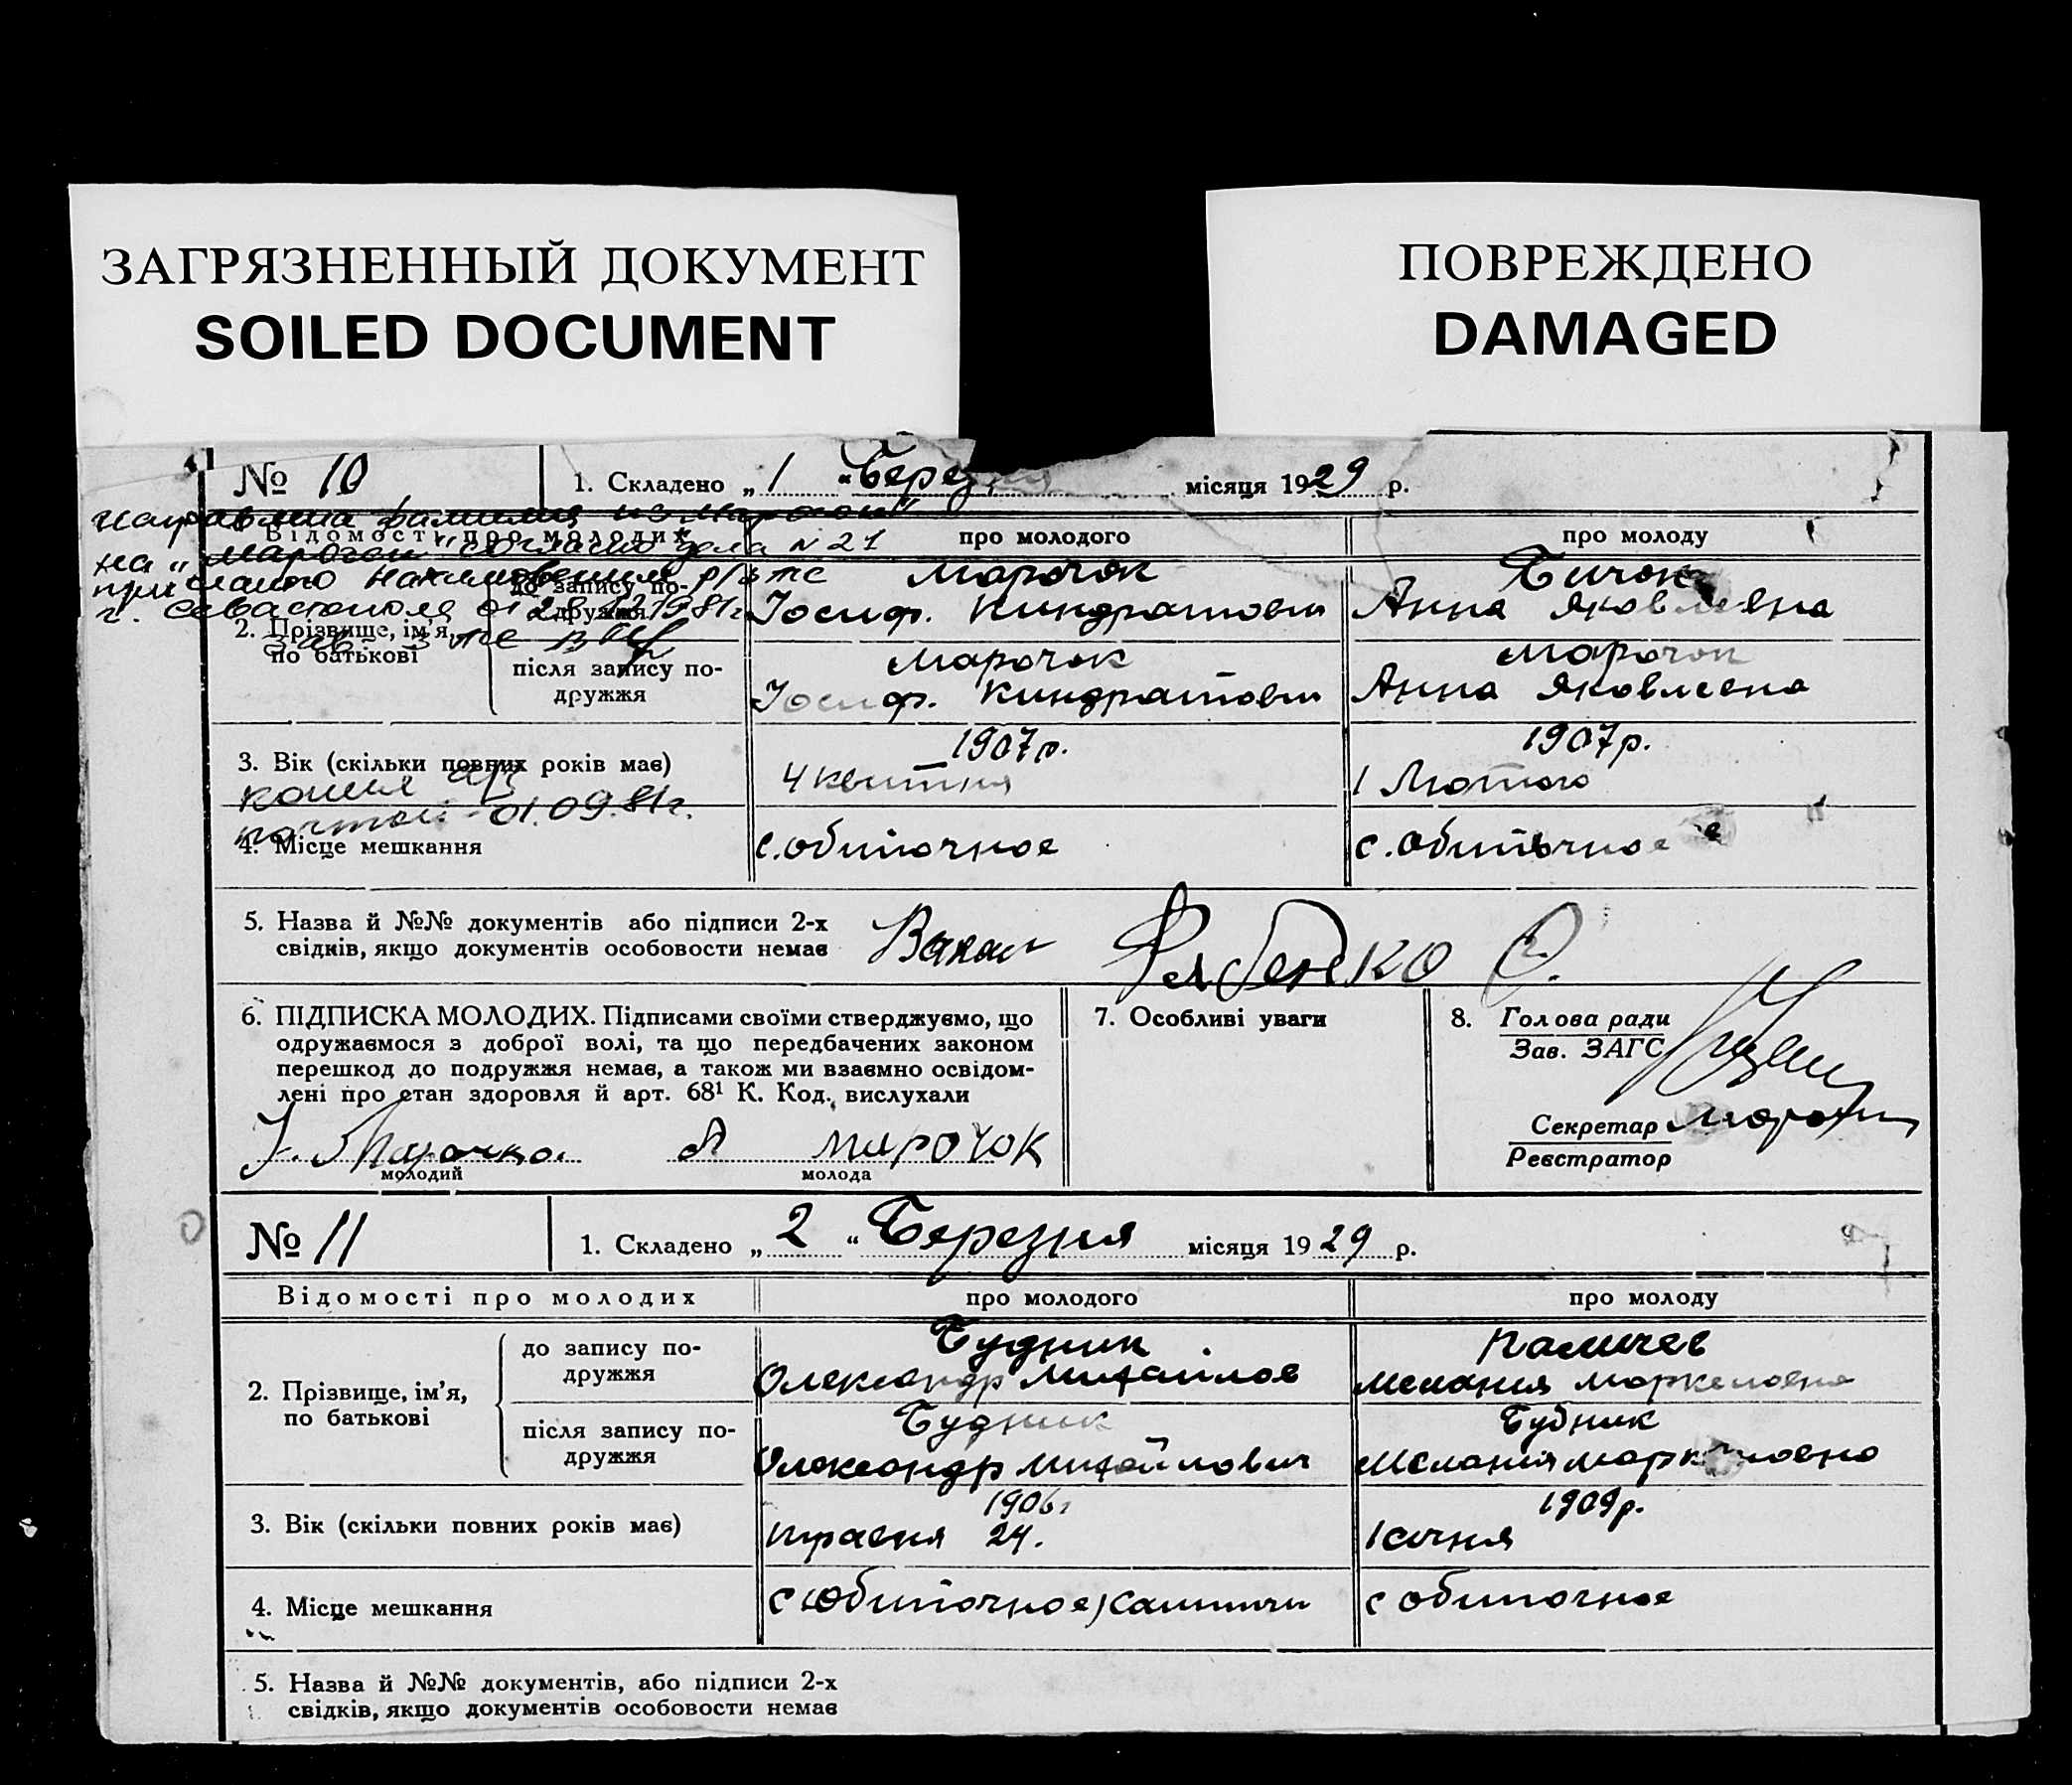 ЗАГРЯЗНЕННЫЙ ДОКУМЕНТ
SOILED DOCUMENT
ПОВРЕЖДЕНО
DAMAGED
№ 10
1. Складено „1“ Березня місяця 1929 р.
фамилия из
на „ " согласно дела N 21
г. Севастополя
Відомості про молодих
про молодого
про молоду
2. Прізвище, ім'я, по батькові
до запису подружжя
Марочок
Іосиф. Киндратови
Бичок
Анна Яковлевна
після запису подружжя
Марочок
Іосиф. Киндратови
Марочок
Анна Яковлевна
3. Вік (скільки повних років має)
1907р.
4 квитня
1907р.
1 Лютого
копия
почтой 01.09.81г.
4. Місце мешкання
с. обиточное
с. обиточное
5. Назва й №№ документів або підписи 2-х
свідків, якщо документів особовости немає
6. ПІДПИСКА МОЛОДИХ. Підписами своїми стверджуємо, що
одружаємося з доброї волі, та що передбачених законом
перешкод до подружжя немає, а також ми взаємно освідом-
лені про стан здоровля й арт. 68¹ К. Код. вислухали
молодий
А Марочок
молода
7. Особливі уваги
8. Голова ради
Зав. ЗАГС
Секретар
Реєстратор
№ 11
1. Складено „2“ Березня місяця 1929 р.
Відомості про молодих
про молодого
про молоду
2. Прізвище, ім'я,
по батькові
до запису по-
дружжя
Будник
Олександр Михайлов
Мелания Маркеловна
після запису по-
дружжя
Будник
Олександр Михайлович
Будник
Меланія
3. Вік (скільки повних років має)
1906г
травня 24.
1909р.
1 січня
4. Місце мешкання
с обиточное
с обиточное
5. Назва й №№ документів, або підписи 2-х
свідків, якщо документів особовости немає